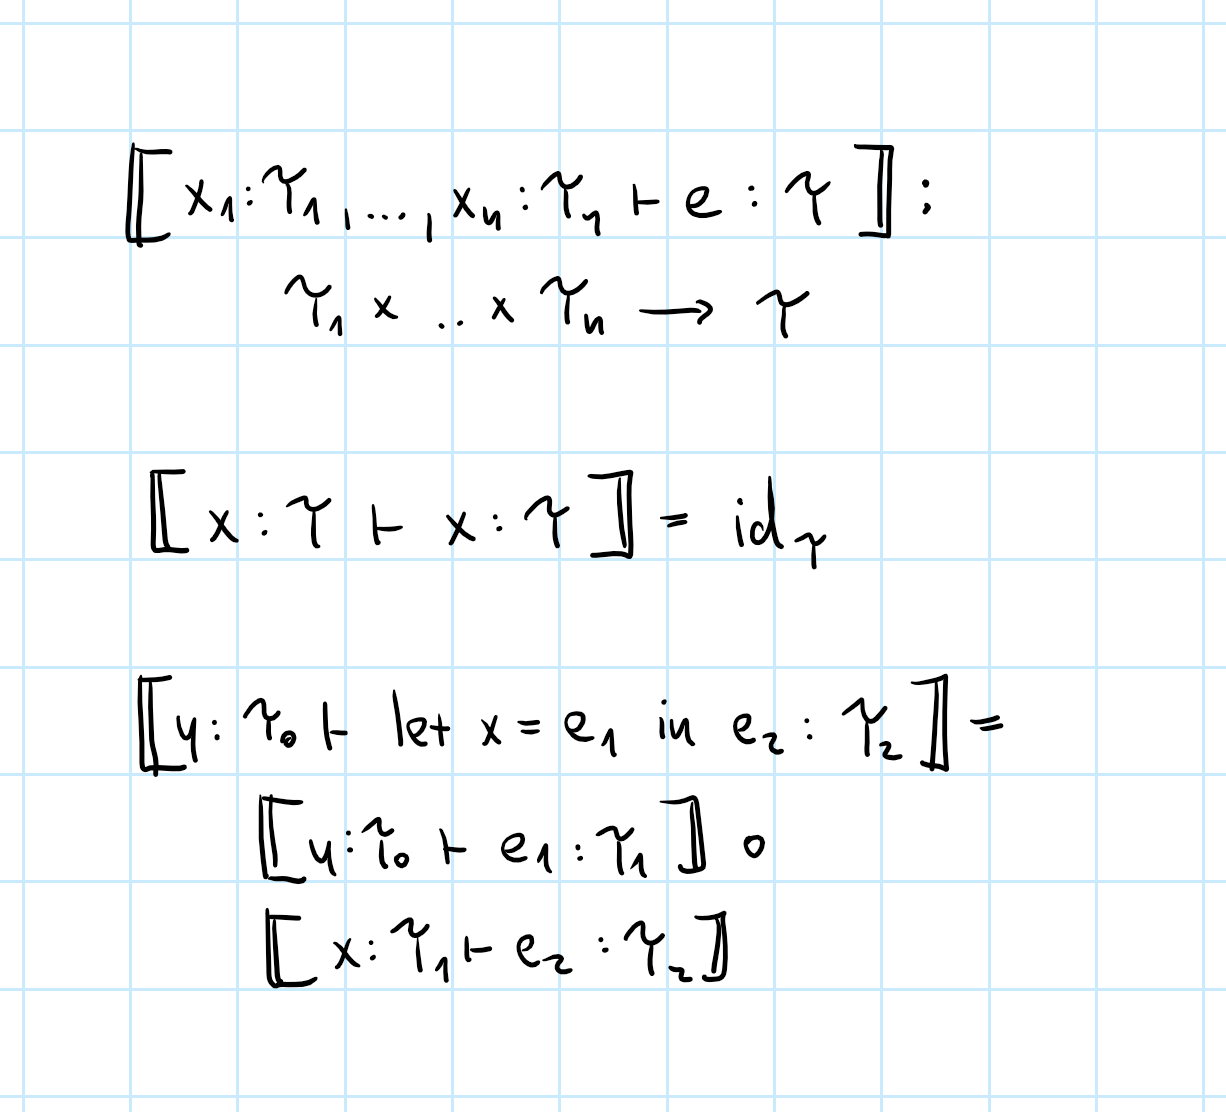 ⟦x₁:τ₁,...,xₙ:τₙ ⊢ e : τ⟧ :
τ₁ × .. × τₙ ⟶ τ
⟦x : τ ⊢ x : τ⟧ = id_τ
⟦y : τ₀ ⊢ let x = e₁ in e₂ : τ₂⟧ =
⟦y : τ₀ ⊢ e₁ : τ₁⟧ ∘
⟦x : τ₁ ⊢ e₂ : τ₂⟧